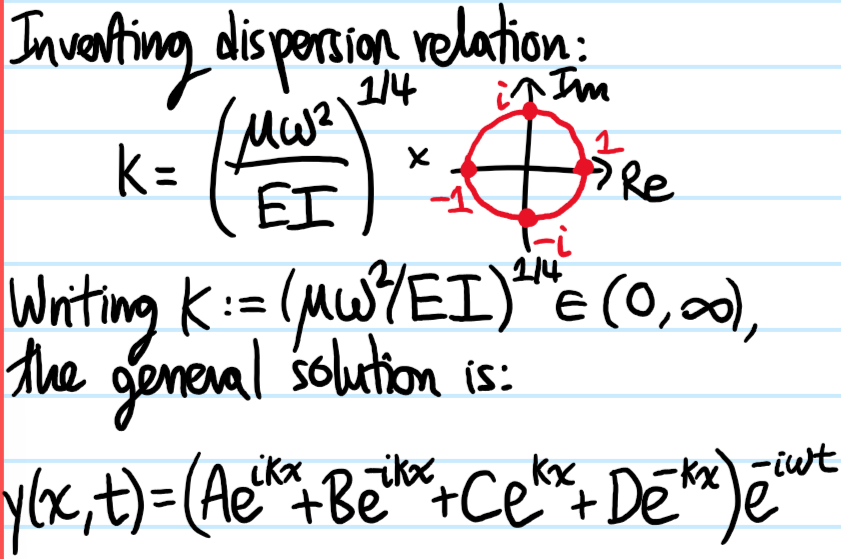 Inverting dispersion relation:
k = (μω²/EI)^1/4 × i Im 1 Re -1 -i
Writing k := (μω²/EI)^1/4 ∈ (0,∞),
the general solution is:
y(x,t)=(Ae^ikx+Be^-ikx+Ce^kx+De^-kx)e^-iωt